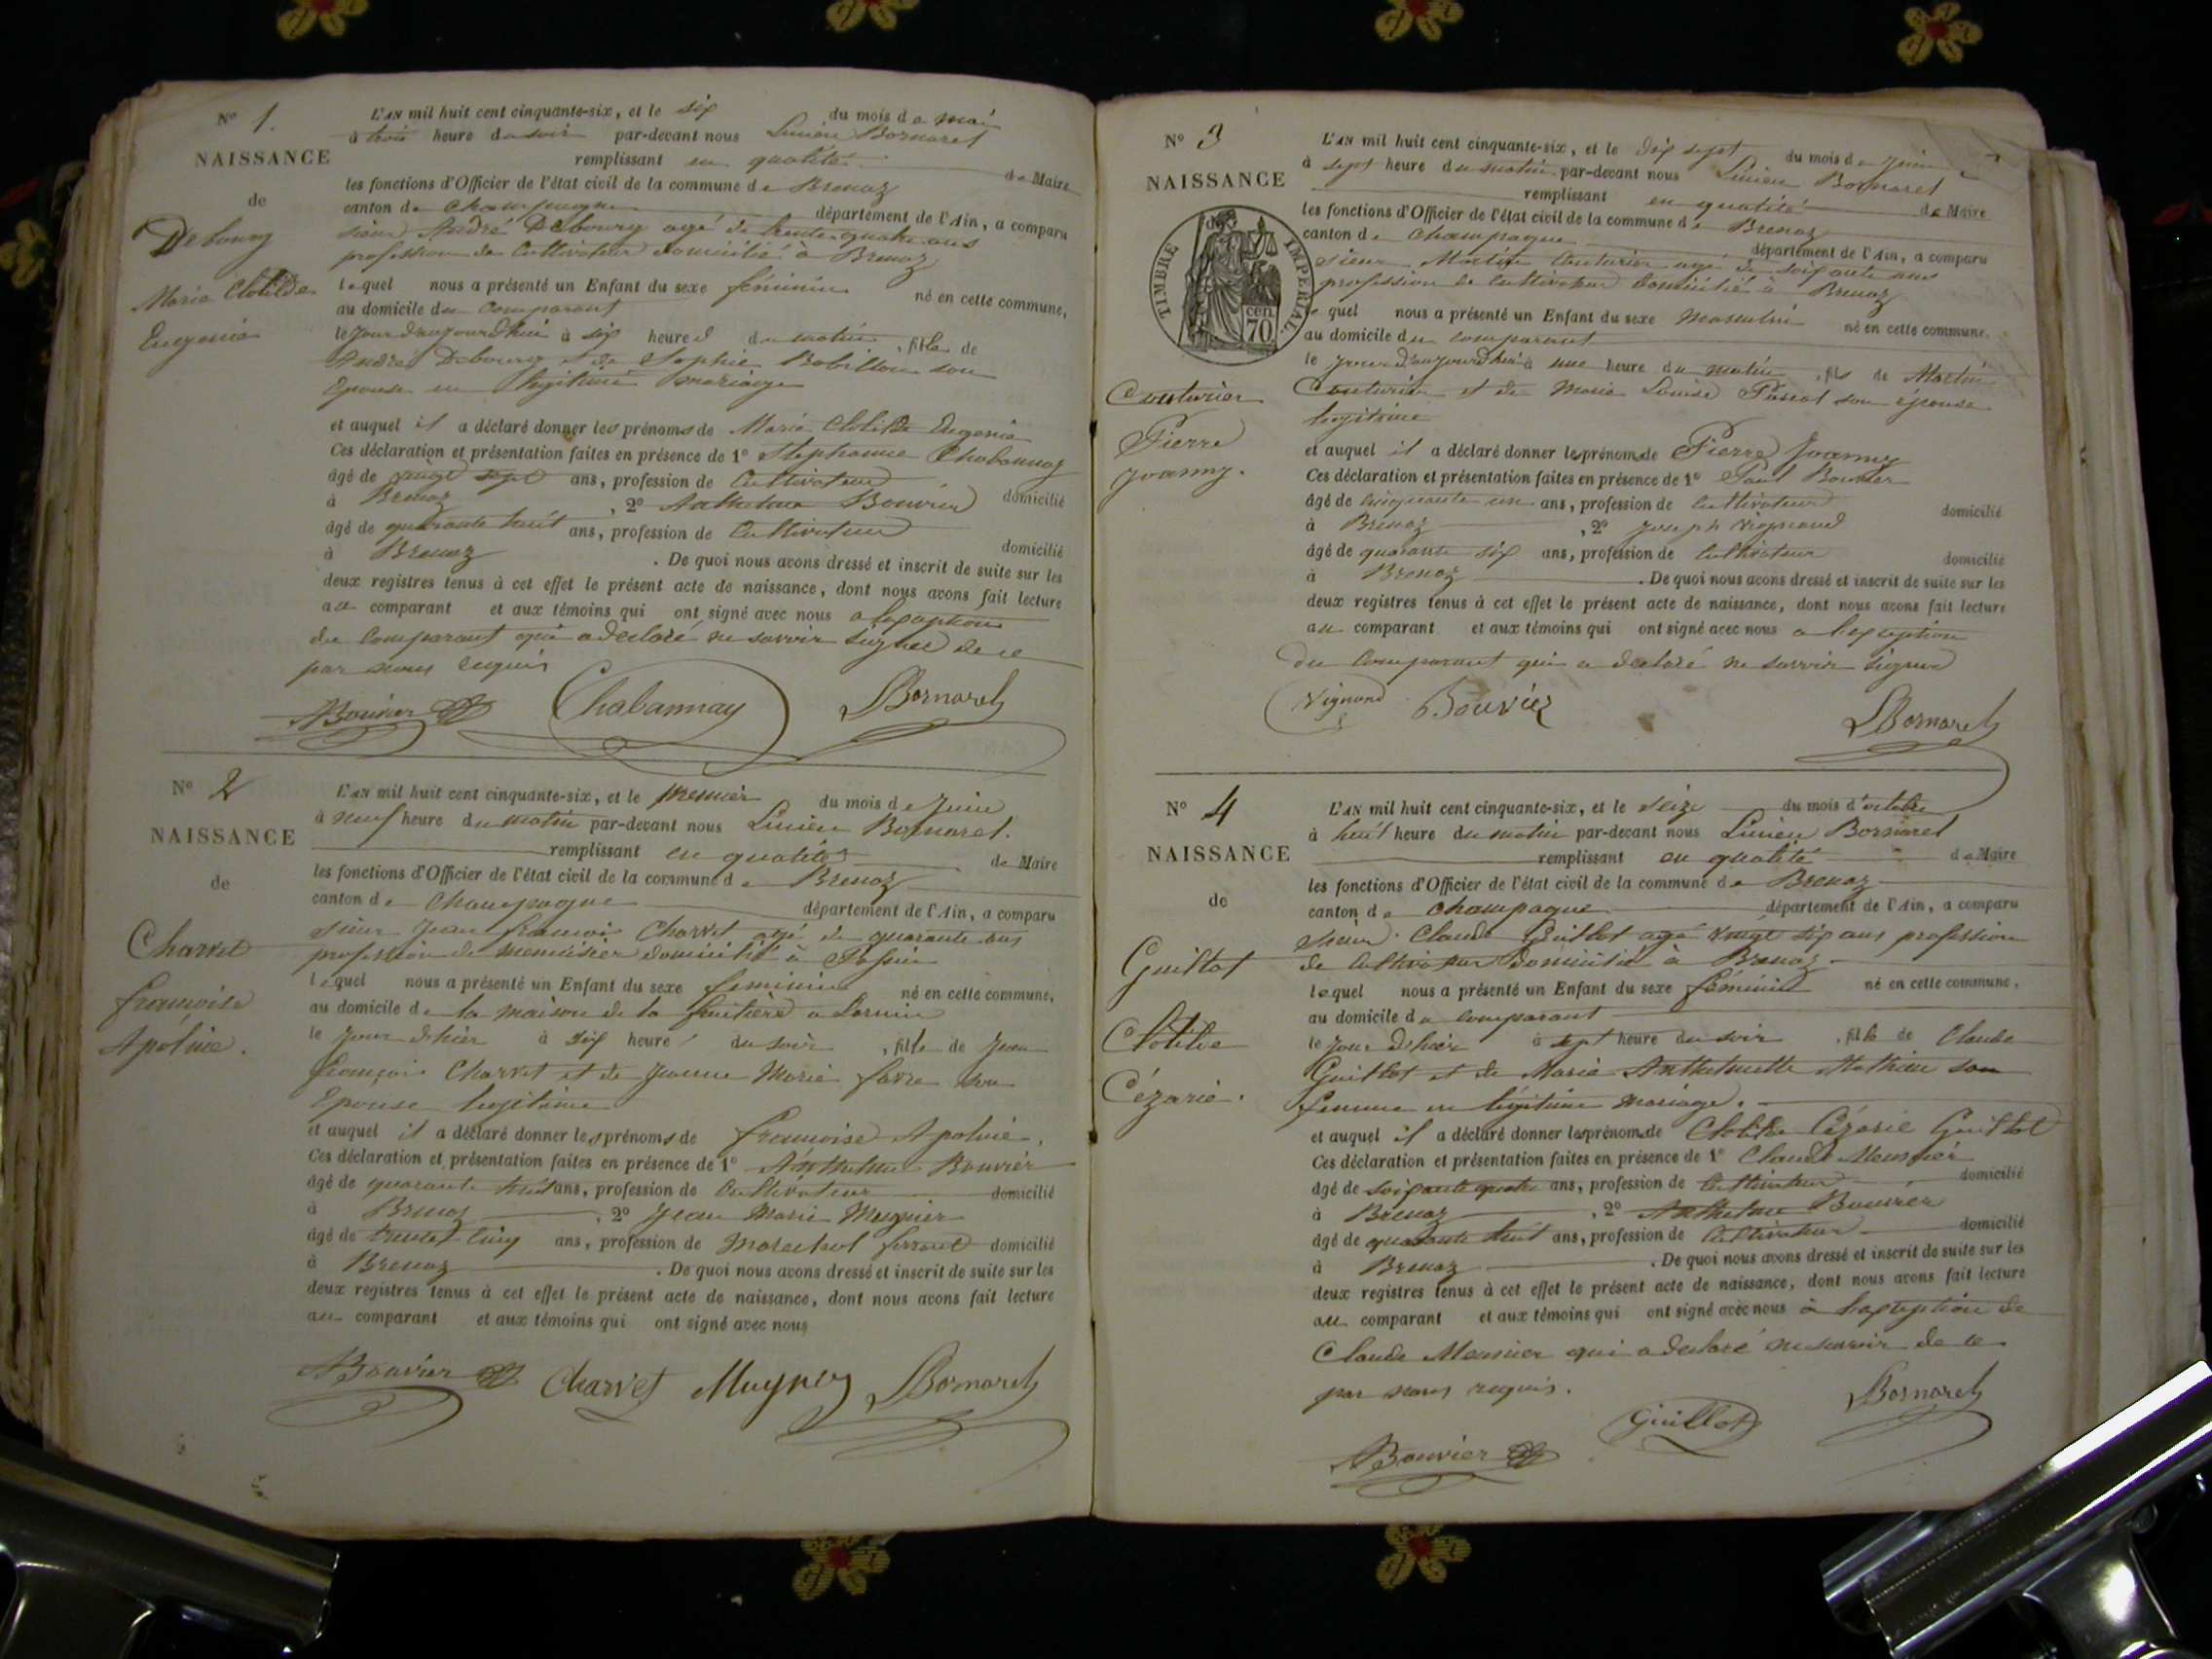 Nº 1.
NAISSANCE
de
Debourg
Marie Clotilde
Eugenie
L'AN mil huit cent cinquante-six, et le six du mois de mai
à trois heure du soir par-devant nous Lucien Bornarel
remplissant en qualité de Maire
les fonctions d'Officier de l'état civil de la commune de Brenaz
canton de Champagne département de l'Ain, a comparu
sieur André Debourg agé de trente quatre ans
profession de Cultivateur domicilié à Brenaz
lequel nous a présenté un Enfant du sexe féminin né en cette commune,
au domicile du comparant
le jour d'aujourd'hui à six heures du matin, fille de
André Debourg et de Sophie Bobillon son
Epouse en légitime mariage
et auquel il a déclaré donner les prénoms de Marie Clotilde Eugenie
Ces déclaration et présentation faites en présence de 1º Stephanne Chabannay
âgé de vingt sept ans, profession de Cultivateur domicilié
à Brenaz, 2º Anthelme Bouvier
âgé de quarante huit ans, profession de Cultivateur domicilié
à Brenaz. De quoi nous avons dressé et inscrit de suite sur les
deux registres tenus à cet effet le présent acte de naissance, dont nous avons fait lecture
au comparant et aux témoins qui ont signé avec nous a l'exception
du comparant qui a declaré ne savoir signer de ce
par nous requis
ABouvier Chabannay LBornarel
Nº 2
NAISSANCE
de
Charvet
françoise
Apolnie.
L'AN mil huit cent cinquante-six, et le premier du mois de Juin
à neuf heure du matin par-devant nous Lucien Bornarel.
remplissant en qualité de Maire
les fonctions d'Officier de l'état civil de la commune de Brenaz
canton de Champagne département de l'Ain, a comparu
sieur Jean françois Charvet agé de quarante ans
profession de menuisier domicilié à Passin
lequel nous a présenté un Enfant du sexe feminin né en cette commune,
au domicile de la maison de la fruitière a
le jour d'hier à dix heure du soir, fille de Jean
françois Charvet et de Jeanne Marie favre son
Epouse legitime
et auquel il a déclaré donner les prénoms de françoise Apolnie.
Ces déclaration et présentation faites en présence de 1º Anthelme Bouvier
âgé de quarante huit ans, profession de Cultivateur domicilié
à Brenaz, 2º Jean Marie Mugnier
âgé de trente cinq ans, profession de Marechal ferrant domicilié
à Brenaz. De quoi nous avons dressé et inscrit de suite sur les
deux registres tenus à cet effet le présent acte de naissance, dont nous avons fait lecture
au comparant et aux témoins qui ont signé avec nous
ABouvier Charvet Mugnier LBornarel
Nº 3
NAISSANCE
TIMBRE IMPERIAL.
cen. 70.
Couturier
Pierre
Joanny.
L'AN mil huit cent cinquante-six, et le dix sept du mois de Juin
à sept heure du matin par-devant nous Lucien Bornarel
remplissant en qualité de Maire
les fonctions d'Officier de l'état civil de la commune de Brenaz
canton de Champagne département de l'Ain, a comparu
sieur Martin Couturier agé de soixante ans
profession de Cultivateur domicilié à Brenaz
lequel nous a présenté un Enfant du sexe Masculin né en cette commune.
au domicile du comparant
le jour d'aujourd'hui à une heure du matin, fils de Martin
Couturier et de Marie Louise Pascal son épouse
legitime
et auquel il a déclaré donner les prénoms de Pierre Joanny
Ces déclaration et présentation faites en présence de 1º Paul Bouvier
âgé de cinquante un ans, profession de Cultivateur domicilié
à Brenaz, 2º Joseph Vignand
âgé de quarante six ans, profession de Cultivateur domicilié
à Brenaz. De quoi nous avons dressé et inscrit de suite sur les
deux registres tenus à cet effet le présent acte de naissance, dont nous avons fait lecture
au comparant et aux témoins qui ont signé avec nous a l'exception
du comparant qui a declaré ne savoir signer
Vignand Bouvier LBornarel
Nº 4
NAISSANCE
de
Guillot
Clotilde
Cézarie.
L'AN mil huit cent cinquante-six, et le seize du mois d'octobre
à huit heure du matin par-devant nous Lucien Bornarel
remplissant en qualité de Maire
les fonctions d'Officier de l'état civil de la commune de Brenaz
canton de Champagne département de l'Ain, a comparu
sieur Claude Guillot agé vingt six ans profession
de Cultivateur domicilié à Brenaz
lequel nous a présenté un Enfant du sexe féminin né en cette commune,
au domicile du comparant
le jour d'hier à sept heure du soir, fille de Claude
Guillot et de Marie Anthelmette Mathieu son
femme en légitime mariage.
et auquel il a déclaré donner les prénoms de Clotilde Cézarie Guillot
Ces déclaration et présentation faites en présence de 1º Claude Meunier
âgé de soixante quatre ans, profession de Cultivateur domicilié
à Brenaz, 2º Anthelme Bouvier
âgé de quarante huit ans, profession de Cultivateur domicilié
à Brenaz. De quoi nous avons dressé et inscrit de suite sur les
deux registres tenus à cet effet le présent acte de naissance, dont nous avons fait lecture
au comparant et aux témoins qui ont signé avec nous à l'exception de
Claude Meunier qui a declaré ne savoir de ce
par nous requis.
ABouvier Guillot LBornarel